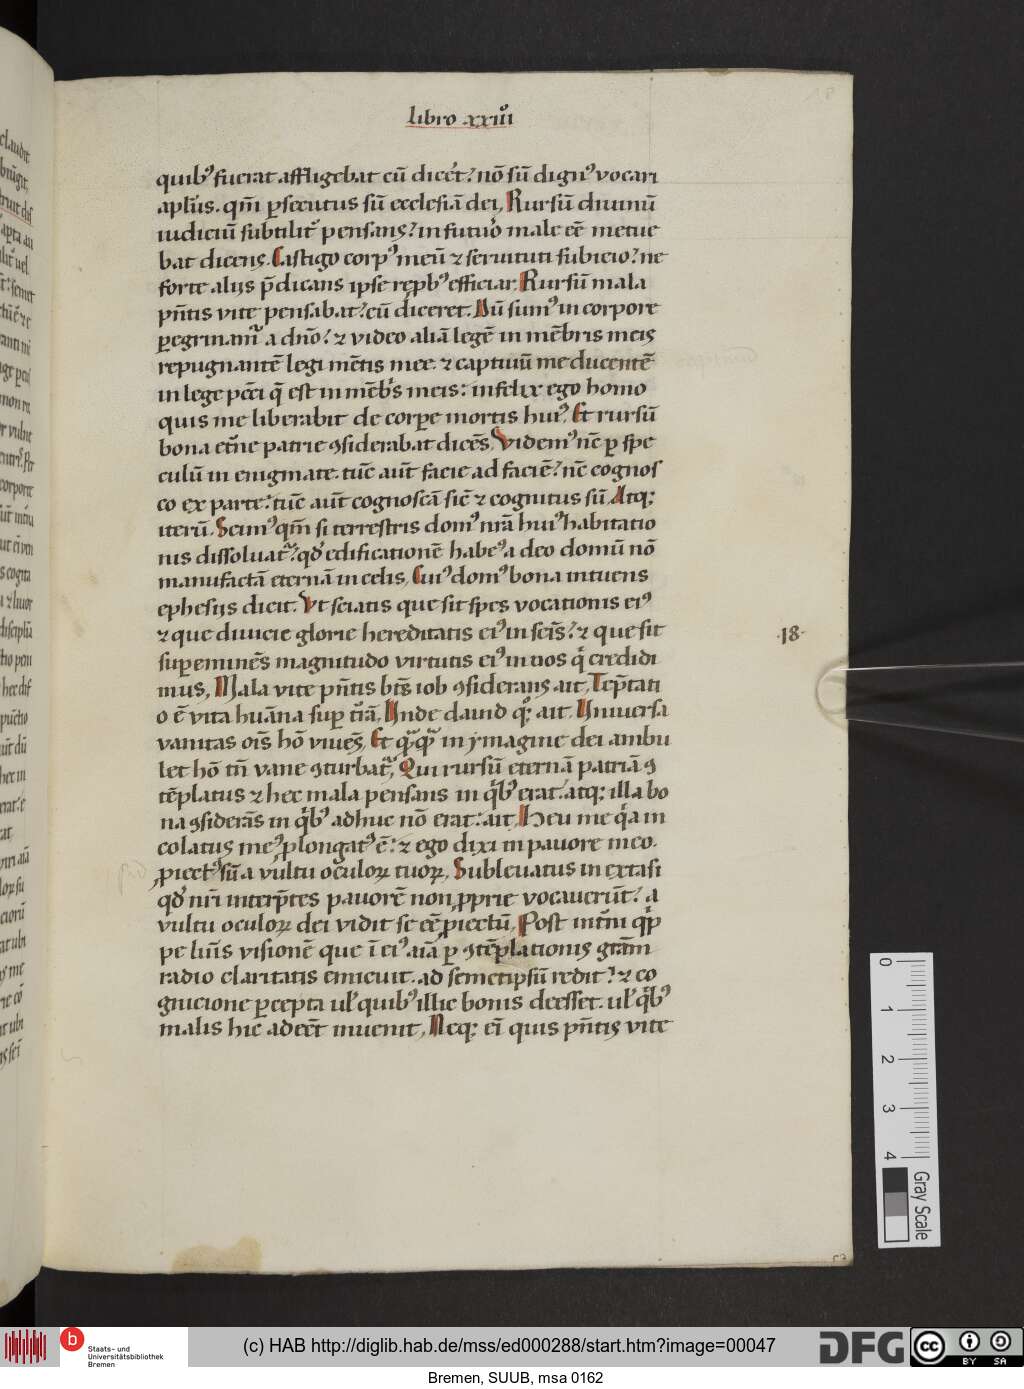 libro xxiiiͦ
quibꝰ fuerat affligebat cū diceꝛ̄t? nō sū dignꝰ vocari
aplūs. qm̄ ꝑsecutus sū ecclesiā dei, Rursū diuinū
iudiciū subtilit᷑ pensans? in futuro male eē metue
bat dicens. Castigo corpꝰ meū ⁊ seruituti subicio? ne
forte alijs p̄dicans ipse repbꝰ efficiar. Rursū mala
pn̄tis vite pensabat? cū diceret. Dū sumꝰ in corpore
ꝑegrinam᷑ a dn̄o? ⁊ video aliā legē in mēbris meis
repugnantē legi mētis mee. ⁊ captiuū me ducentē
in lege pcc̄i q̄ est in mēbs̄ meis: infelix ego homo
quis me liberabit de corpe mortis huiꝰ, Et rursū
bona et̄ne patrie ꝯsiderabat dicēs, Videmꝰ nc̄ ꝑ spe
culū in enigmate. tūc aūt facie ad faciē? nc̄ cognos
co ex parte: tūc aūt cognoscā sic̄ ⁊ cognitus sū. Atq;
iterū. Scimꝰ qm̄ si terrestris domꝰ nr̄a huiꝰ habitatio
nis dissoluat᷑? qd̄ edificationē habeꝰ a deo domū nō
manufactā eternā in celis, Cuiꝰ domꝰ bona intuens
ephesijs dicit. Vt sciatis que sit spes vocationis eiꝰ
⁊ que diuicie glorie hereditatis eiꝰ in scis̄? ⁊ que sit
suꝑeminēs magnitudo virtutis eiꝰ in nos q̄ credidi
mus, Mala vite pn̄tis bts̄ iob ꝯsiderans ait, Tēp̄tati
o ē vita huāna suꝑ tr̄ā. Vnde dauid q; ait. Vniuersa
vanitas oīs hō viuēs, Et qᷓqᷓ in ymagine dei ambu
let hō tn̄ vane ꝯturbat᷑, Qui rursū eternā patriā ꝯ
tēplatus ⁊ hec mala pensans in qͥbꝰ erat. atq; illa bo
na ꝯsiderās in qͥbꝰ adhuc nō erat: ait, Heu me qͥa in
colatus meꝰ ꝓlongatꝰ ē: ⁊ ego dixi in pauore meo.
ꝓiectꝰ sū a vultu oculoꝝ tuoꝝ, Subleuatus in extasi
qd̄ nr̄i interp̄tes pauorē non ꝓprie vocauerūt? a
vultu oculoꝝ dei vidit se eē ꝓiectū, Post intm̄i qͥp
pe luīs visionē que ī eiꝰ aiā ꝑ ꝯtēplationis gr̄am
radio claritatis emicuit. ad semetipsū redit? ⁊ co
gnicione ꝑcepta ul̓ quibꝰ illic bonis deesset. ul̓ qͥbꝰ
malis hic adeēt inuenit, Neq; ei̅ quis pn̄tis vite
·18·
0
1
2
3
4
Gray Scale
b
Staats- und
Universitätsbibliothek
Bremen
(c) HAB http://diglib.hab.de/mss/ed000288/start.htm?image=00047
DFG
cc
BY SA
Bremen, SUUB, msa 0162